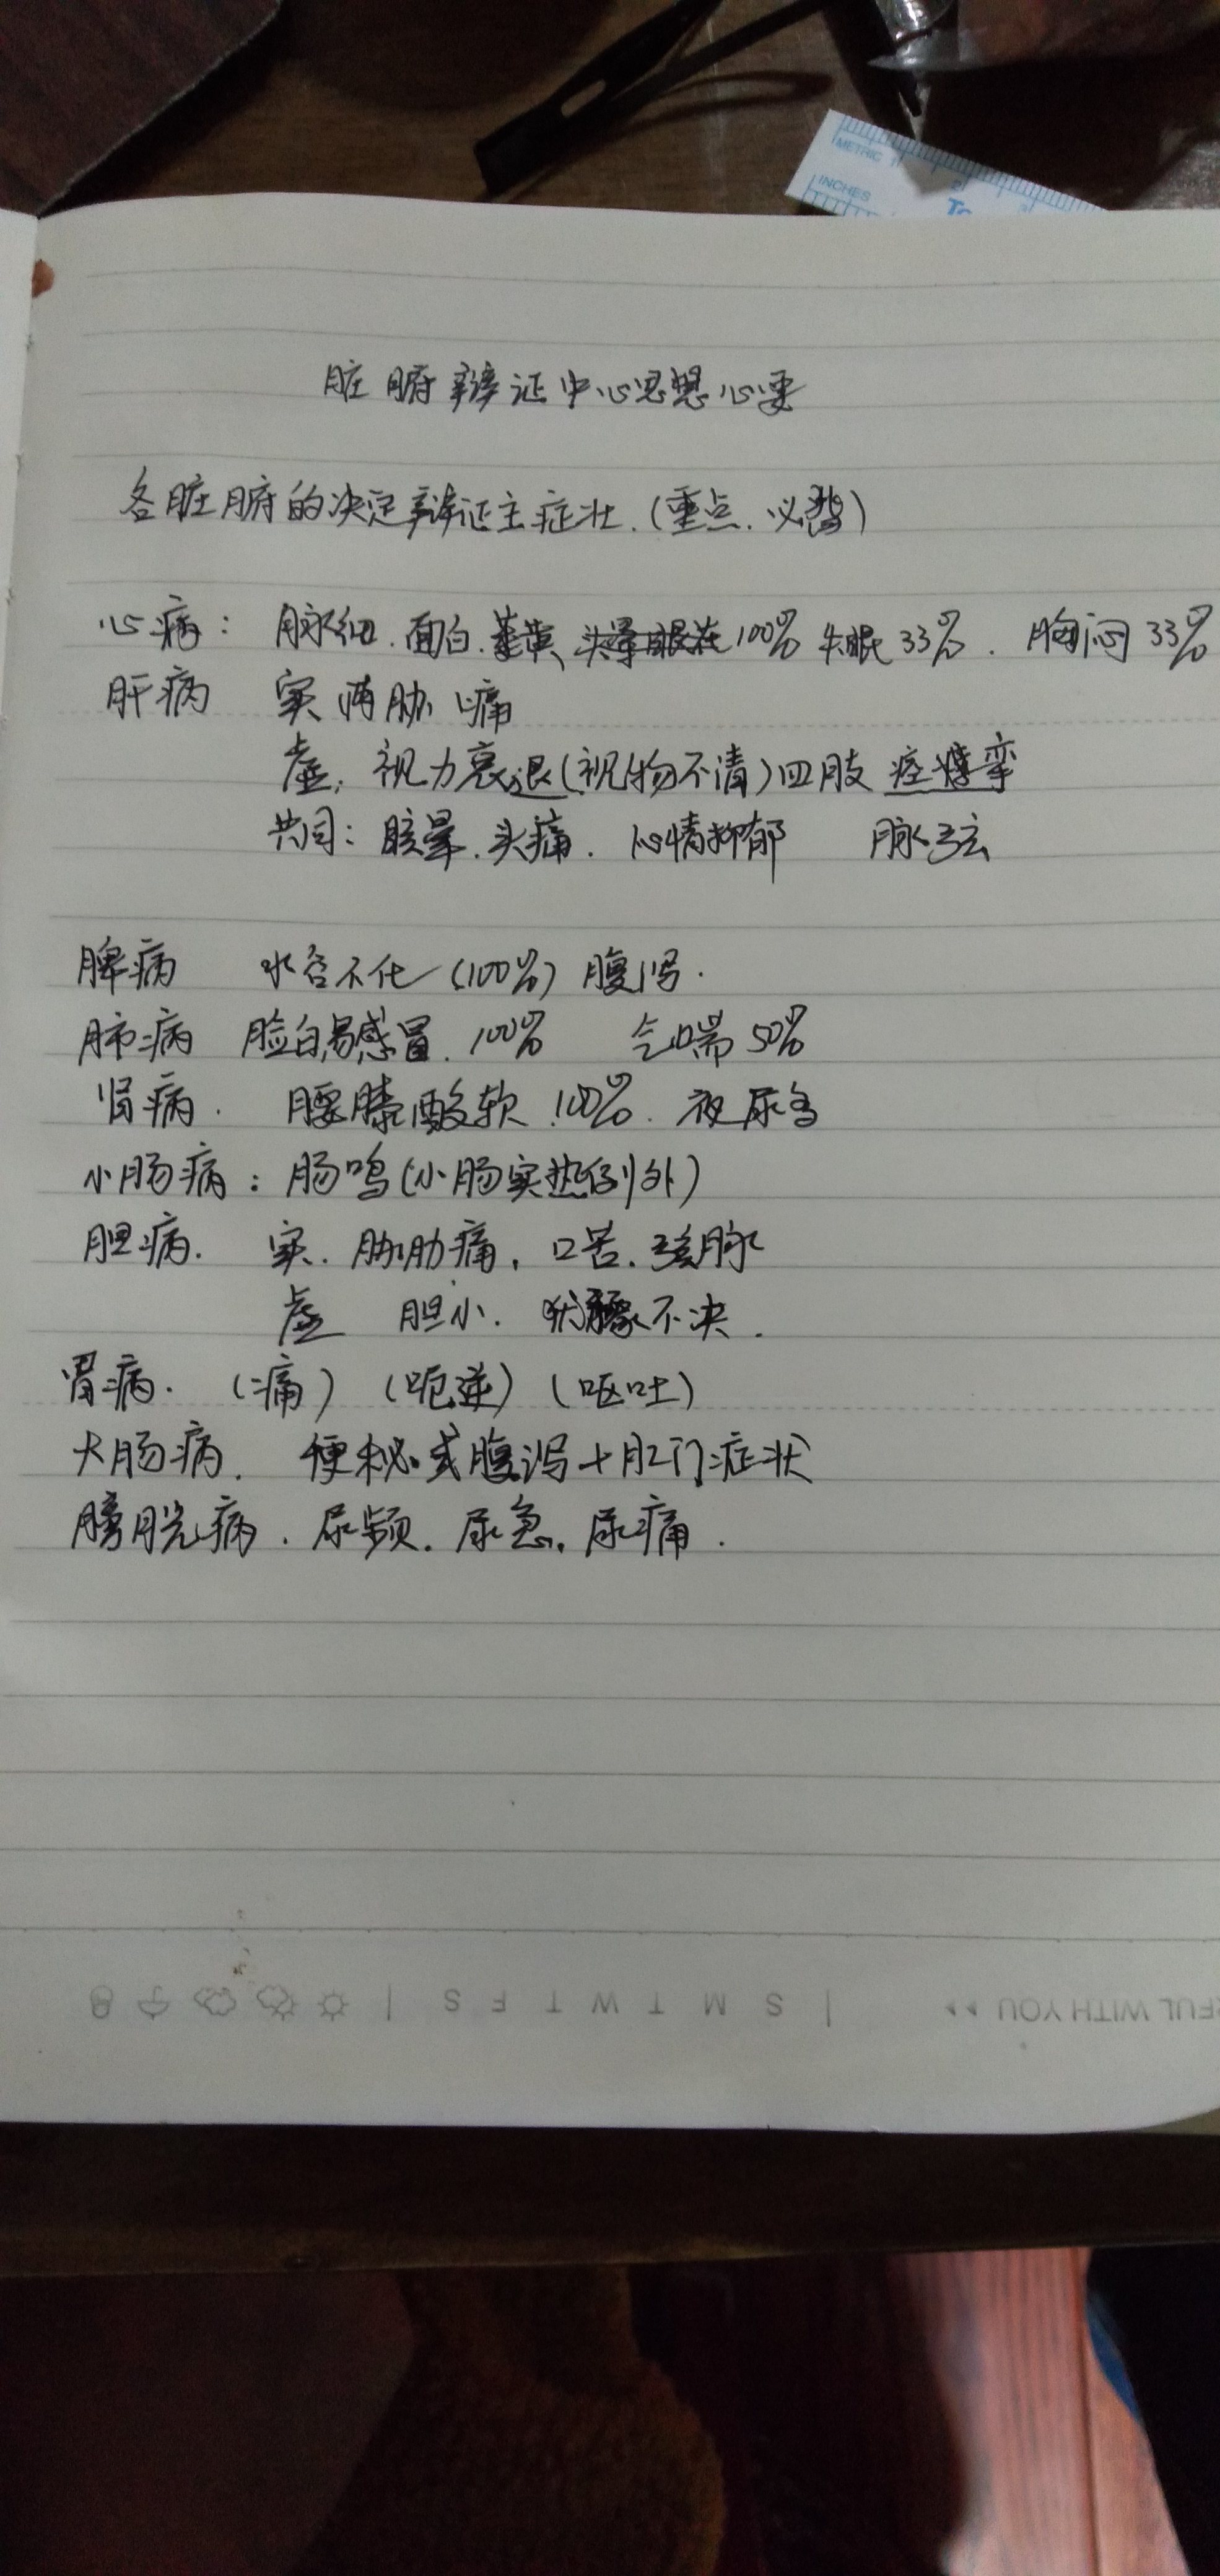 METRIC 1 2 3
INCHES
脏腑辩证中心思想心要
各脏腑的决定辩证主症状.(重点.必背)
心病: 脉细.面白.萎黄、头晕眼花100% 失眠33%. 胸闷33%
肝病 实 两胁痛
虚: 视力衰退(视物不清)四肢痉挛
共同: 眩晕.头痛. 心情抑郁 脉弦
脾病 水谷不化(100%)腹泻.
肺病 脸白易感冒.100% 气喘50%
肾病. 腰膝酸软.100%.夜尿多
小肠病: 肠鸣(小肠实热例外)
胆病. 实. 胁肋痛, 口苦.弦脉
虚 胆小. 犹豫不决.
胃病. (痛) (呃逆) (呕吐)
大肠病. 便秘或腹泻+肛门症状
膀胱病. 尿频.尿急.尿痛.
WITH YOU | S M T W T F S |